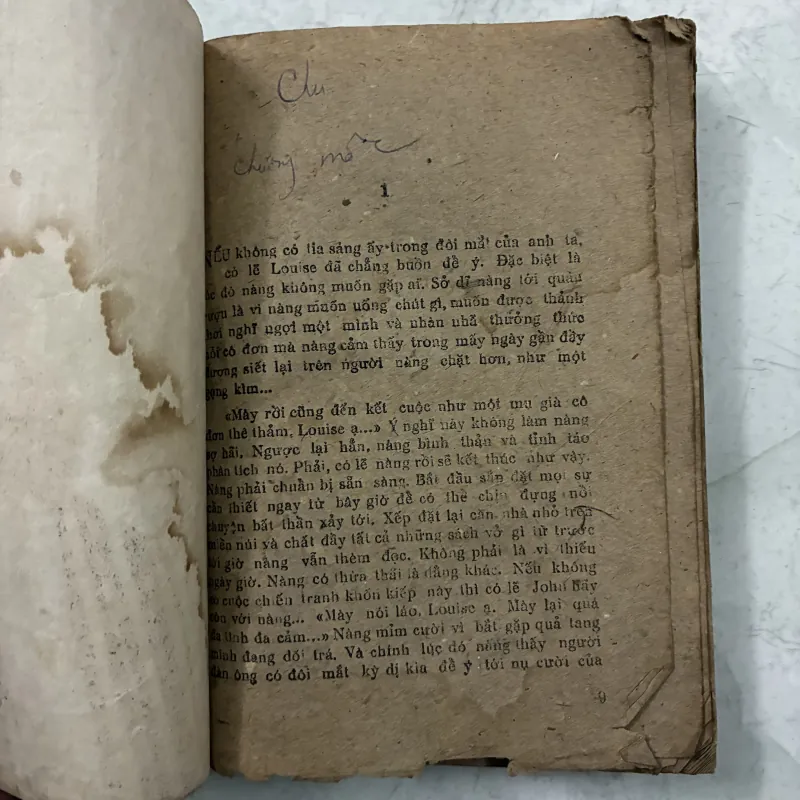 Chu
chương mốc
1
NẾU không có tia sáng ấy trong đôi mắt của anh ta,
có lẽ Louise đã chẳng buồn để ý. Đặc biệt là
lúc đó nàng không muốn gặp ai. Sở dĩ nàng tới quán
rượu là vì nàng muốn uống chút gì, muốn được thảnh
thơi nghỉ ngợi một mình và nhàn nhã thưởng thức
nỗi cô đơn mà nàng cảm thấy trong mấy ngày gần đây
đương siết lại trên người nàng chặt hơn, như một
gọng kìm...
«Mày rồi cũng đến kết cuộc như một mụ già cô
đơn thê thảm, Louise ạ...» Ý nghĩ này không làm nàng
sợ hãi. Ngược lại hẳn, nàng bình thản và tỉnh táo
phân tích nó. Phải, có lẽ nàng rồi sẽ kết thúc như vậy.
Nàng phải chuẩn bị sẵn sàng. Bắt đầu sắp đặt mọi sự
cần thiết ngay từ bây giờ để có thể chịu đựng nổi
chuyện bất thần xảy tới. Xếp đặt lại căn nhà nhỏ trên
miền núi và chất đầy tất cả những sách vở gì từ trước
tới giờ nàng vẫn thèm đọc. Không phải là vì thiếu
ngày giờ. Nàng có thừa thãi là đằng khác. Nếu không
có cuộc chiến tranh khốn kiếp này thì có lẽ John hãy
còn với nàng... «Mày nói láo, Louise ạ. Mày lại quá
đa tình đa cảm...» Nàng mỉm cười vì bắt gặp quả tang
mình đang dối trá. Và chính lúc đó nàng thấy người
đàn ông có đôi mắt kỳ dị kia để ý tới nụ cười của
9